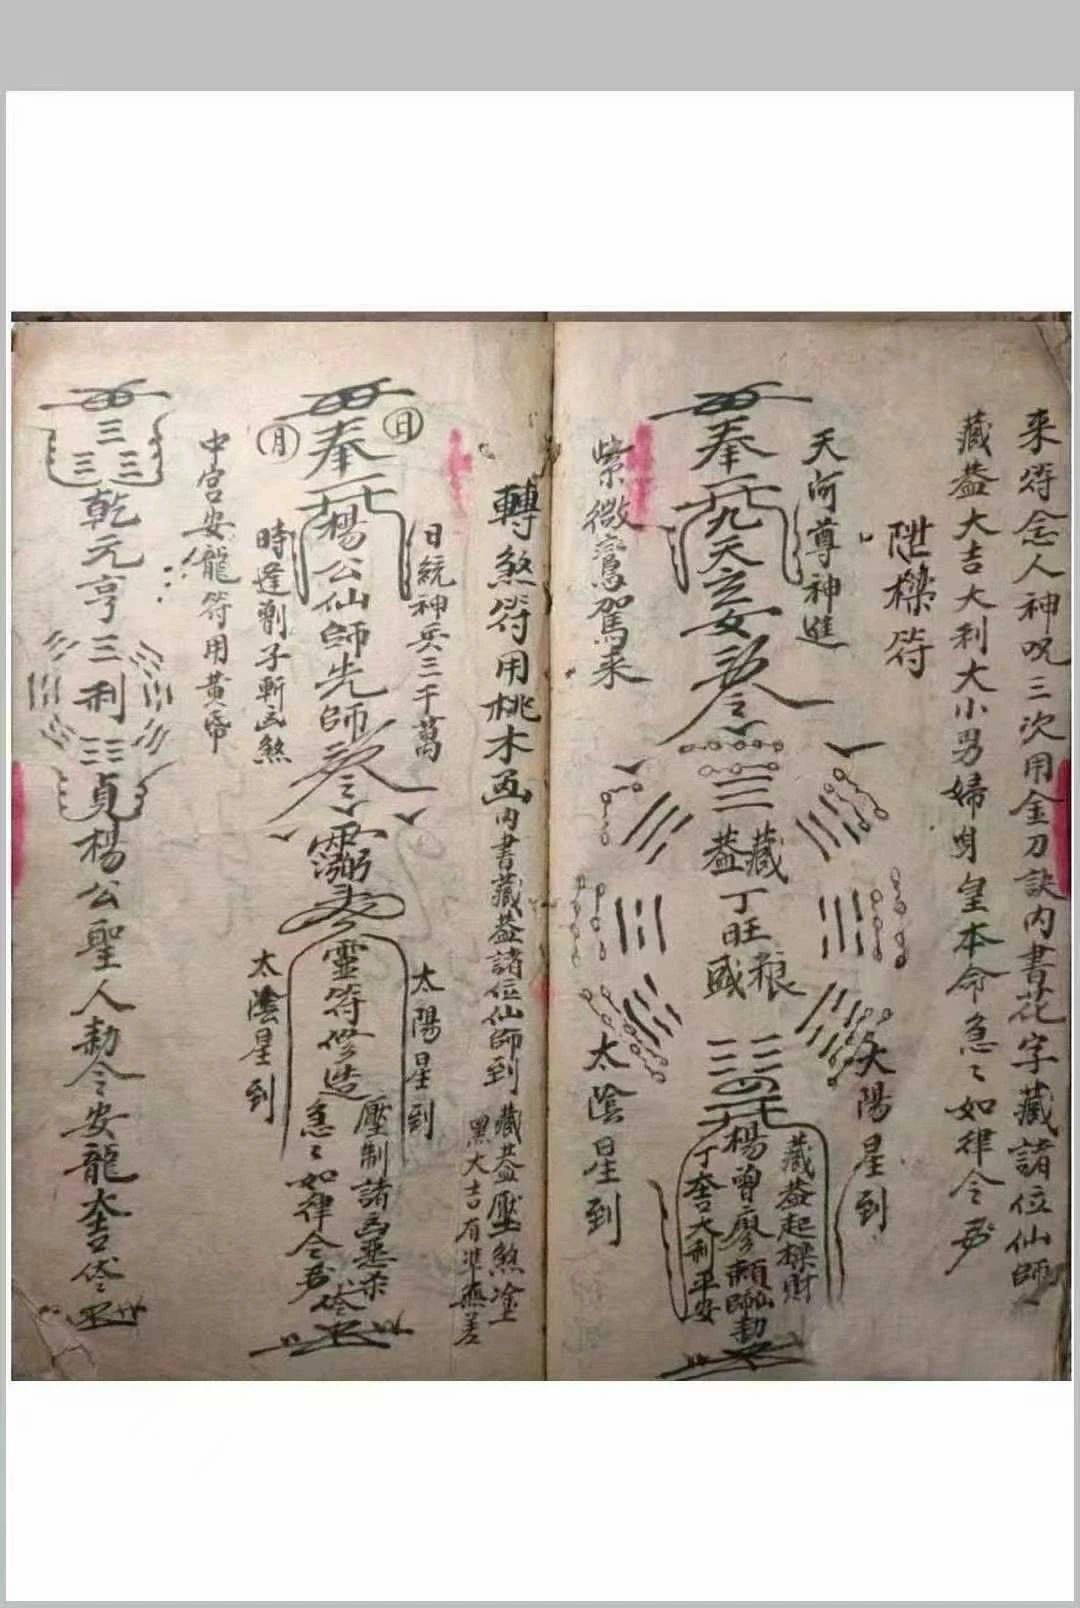 來符念人神咒三次用金刀訣内書花字藏諸位仙師
藏葢大吉大利大小男婦身皇本命急〻如律令
陞樑符
天河尊神進
奉
九天玄女
紫微鸞駕来
藏葢
丁旺粮盛
太陽星到
太陰星到
藏葢起樑財
楊曾廖賴師仙勅
丁大利平安
轉煞符用桃木
内書藏葢諸位仙師到
藏葢壓煞塗
黑大吉有準無差
日
月
奉
楊公仙師先師
日統神兵三千萬
時逢劊子斬凶煞
靈符修造
壓制諸凶惡
急〻如律令
太陽星到
太陰星到
中宮安龍符用黃帋
乾元亨利貞楊公聖人勅令安龍